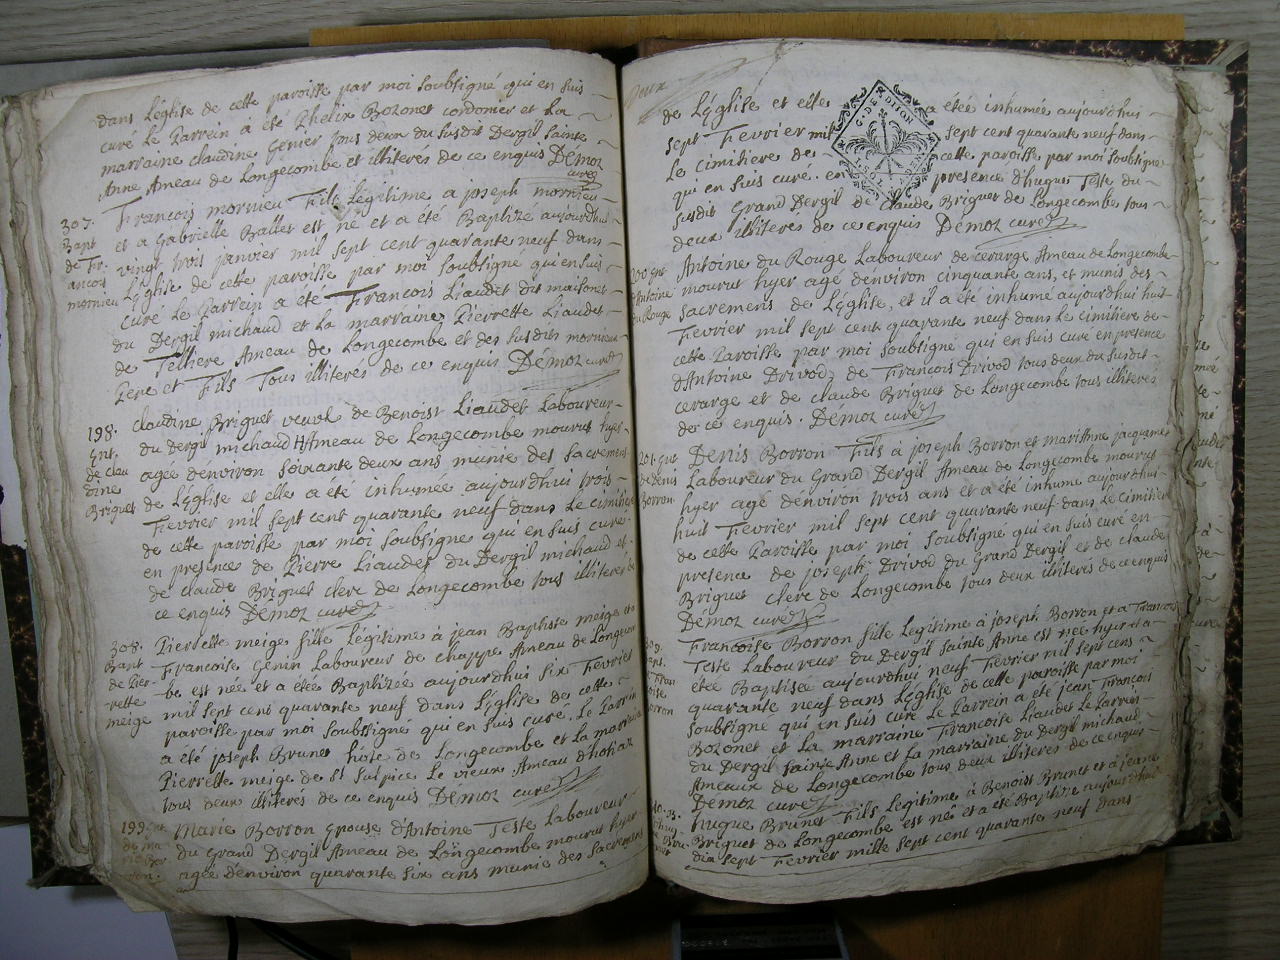 dans Léglise de cette paroisse par moi soubsigné qui en suis
curé Le Parrein a été Phelix Bozonet cordonier et La
marraine claudine Genier tous deux du susdit Dergil sainte
Anne Ameau de Longecombe et illiteres de ce enquis Démoz
curé
307.
Bapt
de Fr.
ancois
mornieu
Francois mornieu Fils Légitime a joseph mornieu
et a Gabrielle Ballet est né et a été Baptizé aujourdhui
vingt trois janvier mil sept cent quarante neuf dans
Léglise de cette paroisse par moi soubsigné qui en suis
curé Le Parrein a été Francois Liaudet dit maisonet
du Dergil michaud et La marraine Pierrette Liaudet
de Ameau de Longecombe et des susdits mornieu
Pere et Fils Tous illiteres de ce enquis Démoz curé
198.
Ent.
de clau
dine
Briguet
claudine Briguet veuve de Benoist Liaudet Laboureur
du Dergil michaud Ameau de Longecombe mourut hyer
agée denviron soixante deux ans munie des sacremens
de Léglise et elle a été inhumée aujourdhui trois
Fievrier mil sept cent quarante neuf dans Le cimitiere
de cette paroisse par moi soubsigné qui en suis curé
en presence de Pierre Liaudet du Dergil michaud et
de claude Briguet clerc de Longecombe tous illiteres de
ce enquis Démoz curé
308.
Bapt
de Pier-
rette
meige
Pierrette meige fille Légitime à jean Baptiste meige et a
Francoise Genin Laboureur de chappe Ameau de Longecom
be est née et a étée Baptizée aujourdhui six Fievrier
mil sept cent quarante neuf dans L'Eglise de cette
paroisse par moi soubsigné qui en suis curé. Le Parrin
a été joseph Brunet hôte de Longecombe et La marraine
Pierrette meige de St Sulpice Le vieux Ameau
tous deux illiterés de ce enquis Démoz curé
199. Ent
de Ma
rie Bor
ron.
Marie Borron Epouse d'Antoine Teste Laboureur
du Grand Dergil Ameau de Longecombe mourut hyer
agée denviron quarante six ans munie des Sacremens
Deux
de L'Eglise et elle a étée inhumée aujourdhui
G. DE DIJON
sept Fievrier mil sept cent quarante neuf dans
Le cimitiere de cette paroisse par moi soubsigné
qui en suis curé. en presence d'hugue Teste du
susdit Grand Dergil de claude Briguet de Longecombe tous
deux illiteres de ce enquis Démoz curé
200. Ent
d'Antoine
du Rouge
Antoine du Rouge Laboureur de cerarge Ameau de Longecombe
mourut hyer agé denviron cinquante ans, et munis des
sacremens de L'Eglise, et il a été inhumé aujourdhui huit
Fievrier mil sept cent quarante neuf dans Le cimitiere de
cette Paroisse par moi soubsigné qui en suis curé en presence
d'Antoine Drivod, de Francois Drivod tous deux du susdit
cerarge et de claude Briguet de Longecombe tous illiteres
de ce enquis. Démoz curé
201. Ent
de denis
Borron
Denis Borron Fils à joseph Borron et mariAnne jacquemet
Laboureur du Grand Dergil Ameau de Longecombe mourut
hyer agé denviron trois ans et a été inhumé aujourdhui
huit Fievrier mil sept cent quarante neuf dans Le cimitiere
de cette Paroisse par moi soubsigné qui en suis curé en
presence de joseph Drivod du Grand Dergil et de claude
Briguet clerc de Longecombe tous deux illiterés de ce enquis
Démoz curé
309.
Francoise Borron fille Legitime à joseph Borron et a Francoise
Teste Laboureur du Dergil Sainte Anne est née hyer et a
étée Baptisée aujourdhui neuf Fievrier mil sept cens
quarante neuf dans L'Eglise de cette paroisse par moi
soubsigné qui en suis curé Le Parrein a été jean Francois
Bozonet et La marraine Francoise Liaudet Le Parrein
du Dergil sainte Anne et La marraine du Dergil michaud
Ameaux de Longecombe tous deux illiteres de ce enquis
Démoz curé
hugue Brunet Fils Legitime à Benoist Brunet et a jeane
Briguet de Longecombe est né et a été Baptizé aujourdhui
dix sept Fievrier mille sept cent quarante neuf dans